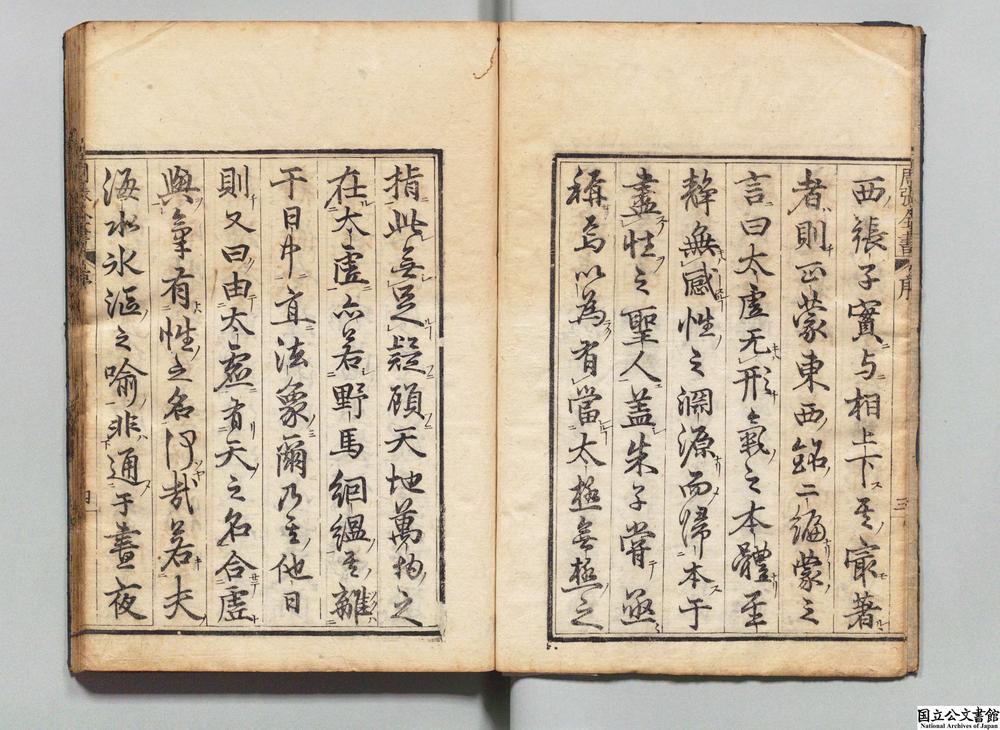 西張子實与相上下其最著
者則正蒙東西銘二編蒙之
言曰太虚无形氣之本體至
靜無感性之淵源而歸本于
盡性之聖人盖朱子嘗亟
稱焉以為有當太極無極之
指此無足疑顧天地萬物之
在太虚亦若野馬絪縕其離
于日中直法象爾乃其他日
則又曰由太虚有天之名合虚
與氣有性之名何哉若夫
海水冰漚之喻非通于晝夜
周張全書
序
三
四
国立公文書館
National Archives of Japan